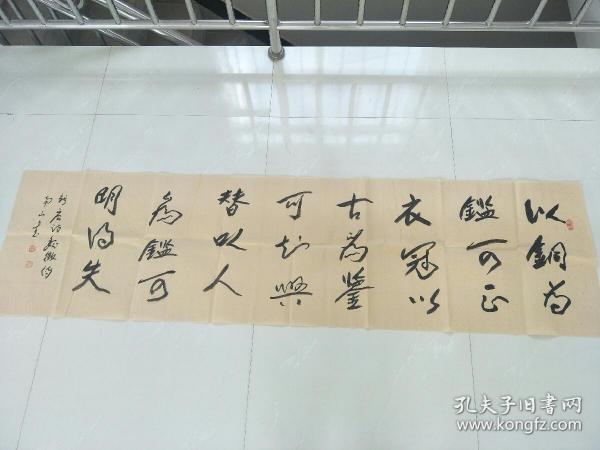 以銅為
鑑可正
衣冠以
古為鑒
可知興
替以人
為鑑可
明得失
新唐書魏徵傳
孔夫子旧书网
www.kongfz.com